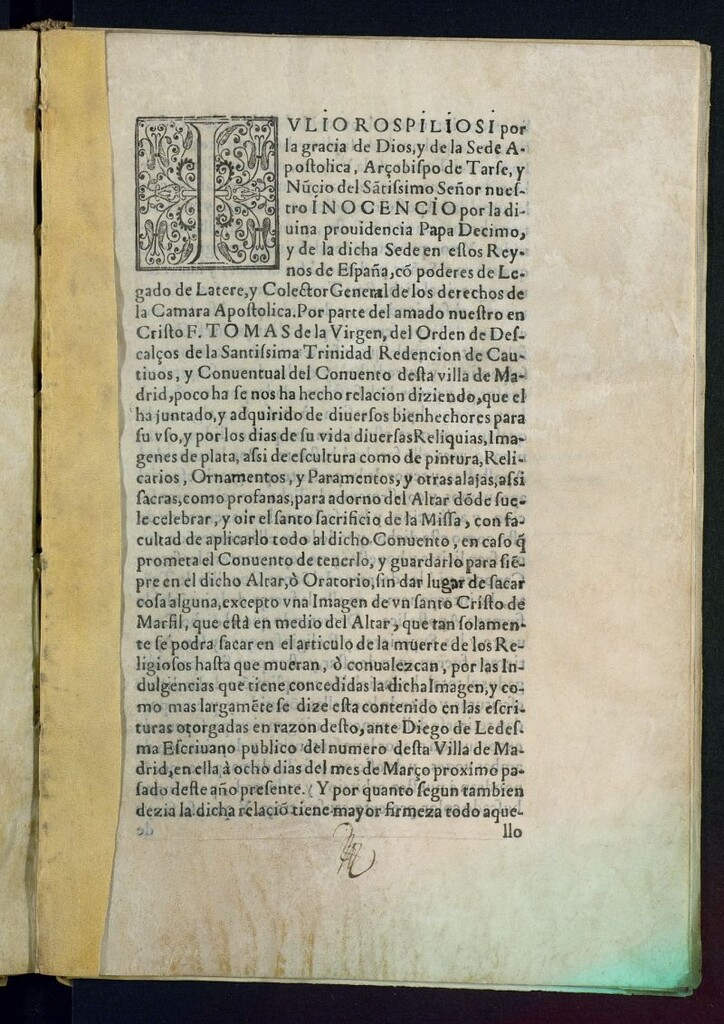 IVLIO ROSPILIOSI por
la gracia de Dios,y de la Sede A-
poſtolica, Arçobiſpo de Tarſe, y
Nũcio del Sãtiſsimo Señor nueſ-
tro INOCENCIO por la di-
uina prouidencia Papa Decimo,
y de la dicha Sede en eſtos Rey-
nos de Eſpaña,cõ poderes de Le-
gado de Latere,y Colector General de los derechos de
la Camara Apoſtolica.Por parte del amado nueſtro en
Criſto F. TOMAS de la Virgen, del Orden de Deſ-
calços de la Santiſsima Trinidad Redencion de Cau-
tiuos, y Conuentual del Conuento deſta villa de Ma-
drid,poco ha ſe nos ha hecho relacion diziendo,que el
ha juntado,y adquirido de diuerſos bienhechores para
ſu vſo,y por los dias de ſu vida diuerſas Reliquias,Ima-
genes de plata, aſsi de eſcultura como de pintura,Reli-
carios, Ornamentos, y Paramentos, y otras alajas,aſsi
ſacras,como profanas,para adorno del Altar dõde ſue-
le celebrar, y oir el ſanto ſacrificio de la Miſſa, con fa-
cultad de aplicarlo todo al dicho Conuento, en caſo q̃
prometa el Conuento de tenerlo, y guardarlo para ſiẽ-
pre en el dicho Altar,ò Oratorio,ſin dar lugar de ſacar
coſa alguna,excepto vna Imagen de vn ſanto Criſto de
Marfil, que eſtà en medio del Altar, que tan ſolamen-
te ſe podra ſacar en el articulo de la muerte de los Re-
ligioſos haſta que mueran, ò conualezcan, por las In-
dulgencias que tiene concedidas la dicha Imagen,y co-
mo mas largamẽte ſe dize eſta contenido en las eſcri-
turas otorgadas en razon deſto,ante Diego de Ledeſ-
ma Eſcriuano publico del numero deſta Villa de Ma-
drid,en ella à ocho dias del mes de Março proximo pa-
ſado deſte año preſente. (Y por quanto ſegun tambien
dezia la dicha relaciõ tiene mayor firmeza todo aque-
llo